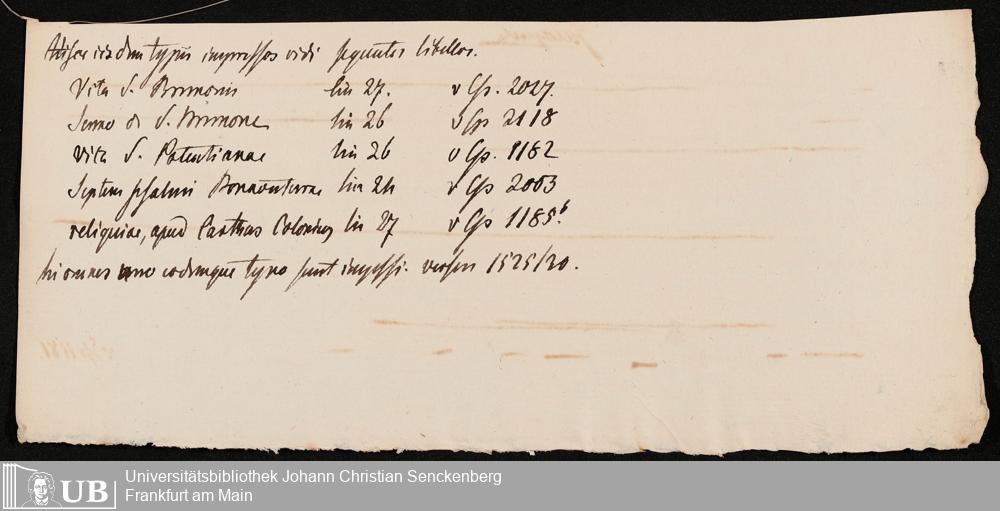 iisdem typis impressos vidi sequentes libellos.
Vita S. Brunonis lin 27. v Cp. 2027.
Sermo de S. Brunone lin 26 v Cp 2118
Vita S. Potentianae lin 26 v Cp. 1182
Septem psalmi Bonaventurae lin 24 v Cp 2003
reliquiae, apud Carthus Colonien lin 27 v Cp 1185b
hi omnes uno eodemque typo sunt impressi. 1525/30.
Universitätsbibliothek Johann Christian Senckenberg
UB Frankfurt am Main